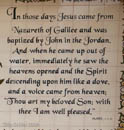 In those days Jesus came from
Nazareth of Galilee and was
baptized by John in the Jordan.
And when he came up out of
water, immediately he saw the
heavens opened and the Spirit
descending upon him like a dove,
and a voice came from heaven;
"Thou art my beloved Son; with
thee I am well pleased."